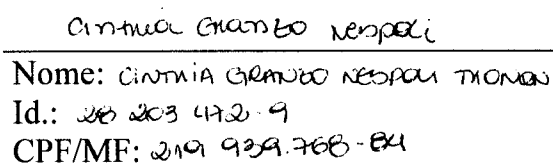 Cinthia Granzo Nespoli
Nome: CINTHIA GRANZO NESPOLI THOMON
Id.: 28 203 472-9
CPF/MF: 219 939.768-84